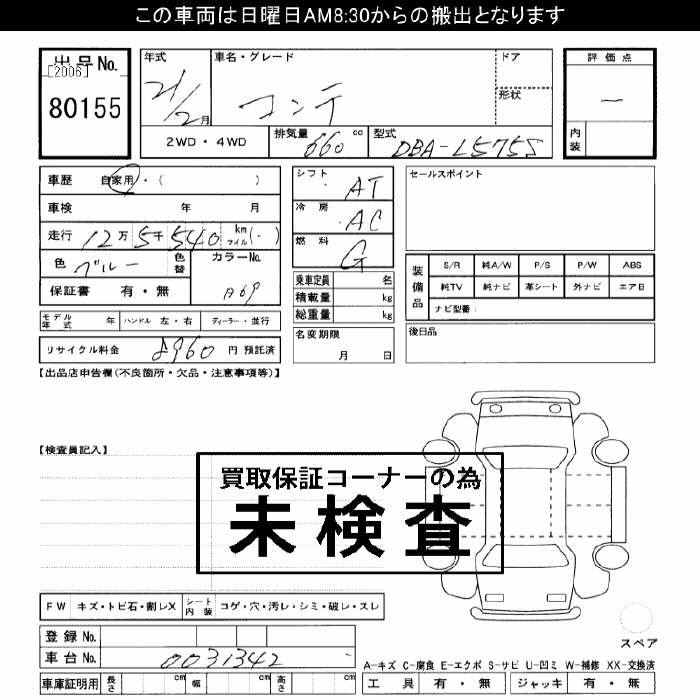 この車両は日曜日AM8:30からの搬出となります
出品No.
[2006]
80155
年式 車名・グレード ドア
21/2月 コンテ
形状
2WD・4WD 排気量 660 cc 型式 DBA-L575S
評価点
ー
内装
車歴 自家用・( )
車検 年 月
走行 12万 5千 540 km マイル (・)
色 ブルー 色替 カラーNo.
保証書 有・無 B69
モデル年式 年 ハンドル 左・右 ディーラー・並行
リサイクル料金 8960 円 預託済
シフト AT
冷房 AC
燃料 G
乗車定員 名
積載量 kg
総重量 kg
名変期限
月 日
セールスポイント
装備品 S/R 純A/W P/S P/W ABS
純TV 純ナビ 革シート 外ナビ エアB
ナビ型番:
後日品
【出品店申告欄(不良箇所・欠品・注意事項等)】
【検査員記入】
買取保証コーナーの為
未検査
FW キズ・トビ石・割レX シート内装 コゲ・穴・汚レ・シミ・破レ・スレ
登録No.
車台No. 0031342
車庫証明用 長さ cm 幅 cm 高さ cm
スペア
A-キズ C-腐食 E-エクボ S-サビ U-凹ミ W-補修 XX-交換済
工具 有・無 ジャッキ 有・無